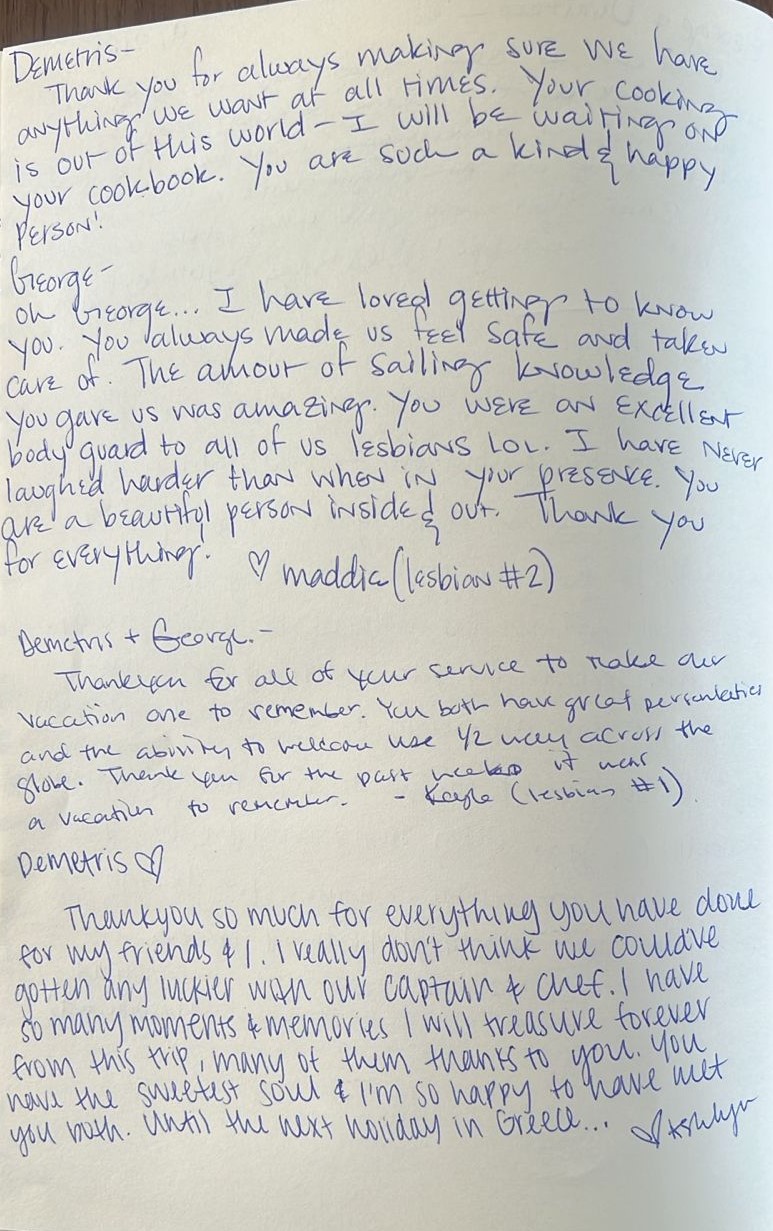 Demetris-
Thank you for always making sure we have
anything we want at all times. Your cooking
is out of this world - I will be waiting on
your cookbook. You are such a kind & happy
person!
George-
Oh George... I have loved getting to know
you. You always made us feel safe and taken
care of. The amout of sailing knowledge
you gave us was amazing. You were an excellent
body guard to all of us lesbians LOL. I have never
laughed harder than when in your presence. You
are a beautiful person inside & out. Thank you
for everything! ♡ maddie (lesbian #2)
Demetris + George. -
Thankyou for all of your service to make our
vacation one to remember. You both have great personalities
and the ability to welcome use 1/2 way across the
globe. Thank you for the past week it was
a vacation to remember. - Kayla (lesbian #1)
Demetris ♡
Thankyou so much for everything you have done
for my friends & I. I really don't think we could've
gotten any luckier with our captain & chef. I have
so many moments & memories I will treasure forever
from this trip, many of them thanks to you. You
have the sweetest soul & I'm so happy to have met
you both. Until the next holiday in Greece... ♡ Ashlyn